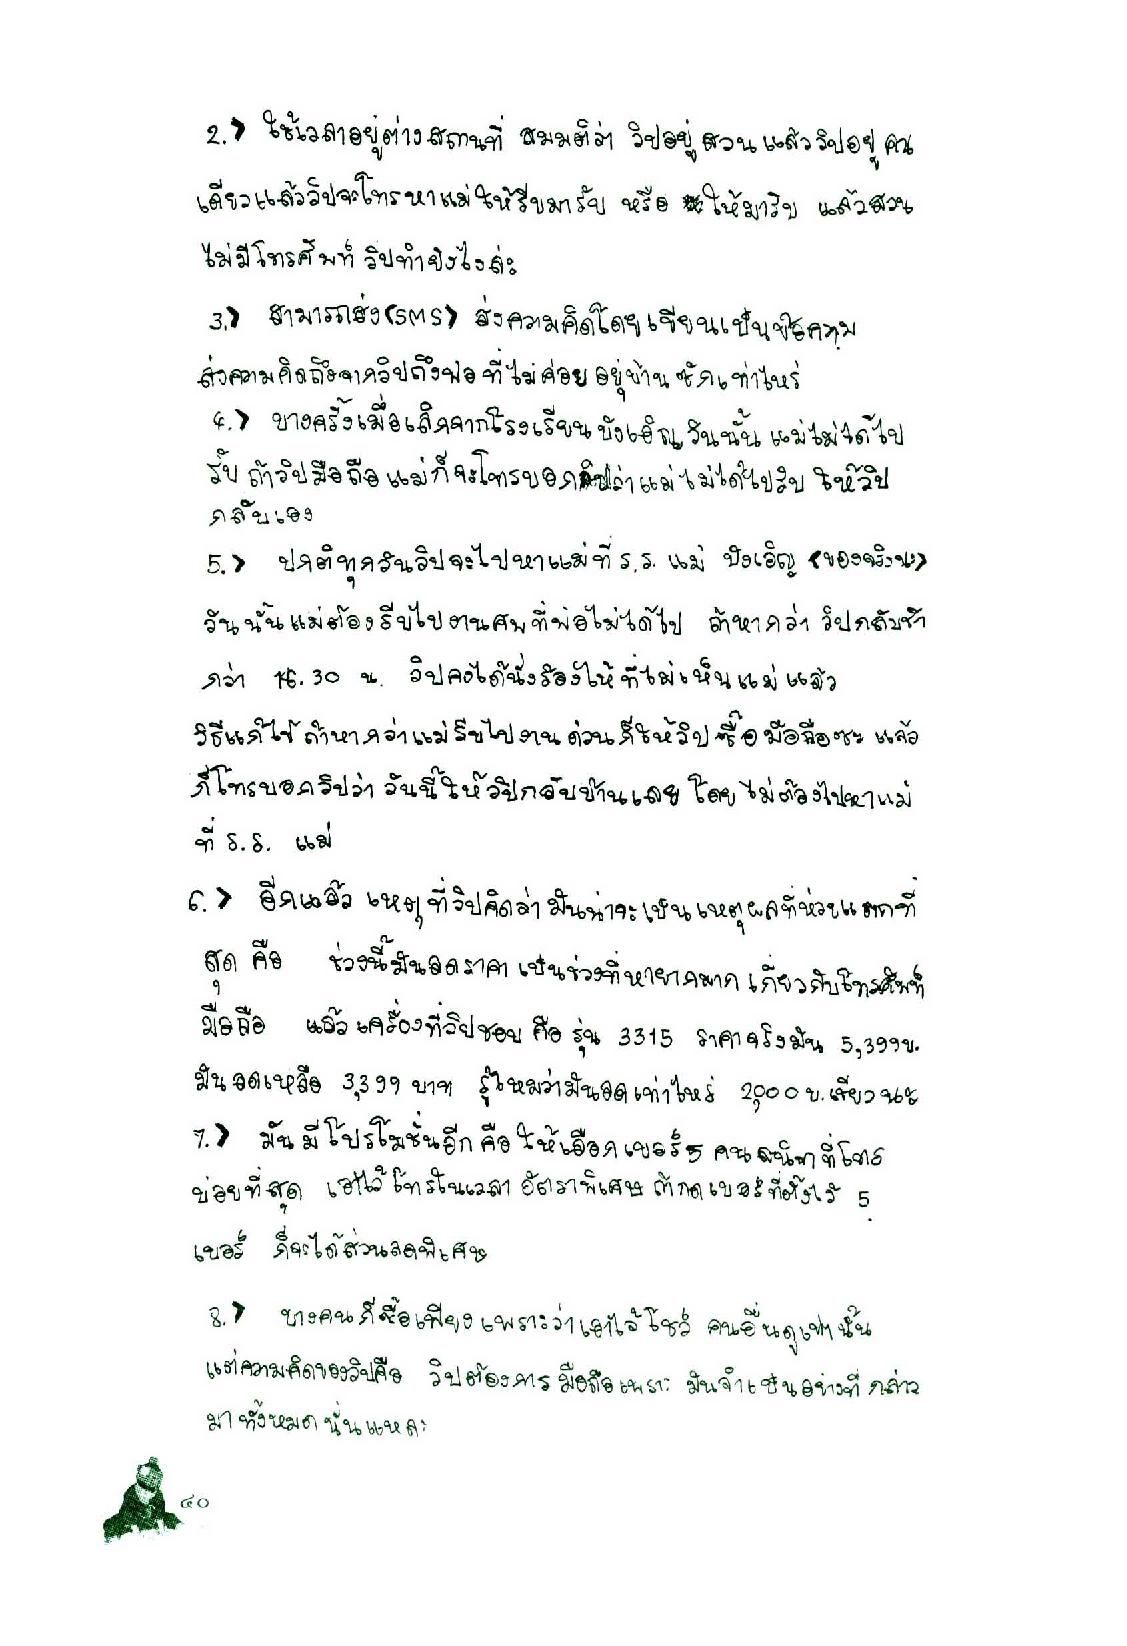 2.> ใช้เวลาอยู่ต่างสถานที่ สมมติว่า วิปอยู่สวนแล้ววิปอยู่คน
เดียวแล้ววิปจะโทรหาแม่ให้รีบมารับ หรือ ให้มารับ แล้วสวน
ไม่มีโทรศัพท์ วิปทำยังไงล่ะ
3.> สามารถส่ง(SMS) ส่งความคิดโดยเขียนเป็นข้อความ
ส่งความคิดถึงจากวิปถึงพ่อ ที่ไม่ค่อยอยู่บ้านซักเท่าไหร่
4.> บางครั้งเมื่อเลิกจากโรงเรียนบังเอิญวันนั้นแม่ไม่ได้ไป
รับ ถ้าวิปมีมือถือแม่ก็จะโทรบอกวิปว่าแม่ไม่ได้ไปรับ ให้วิป
กลับเอง
5.> ปกติทุกวันวิปจะไปหาแม่ที่ ร.ร. แม่ บังเอิญ (ของจริงนะ)
วันนั้นแม่ต้องรีบไปงานศพที่พ่อไม่ได้ไป ถ้าหากว่า วิปกลับช้า
กว่า 16.30 น. วิปคงได้นั่งร้องไห้ที่ไม่เห็นแม่แล้ว
วิธีแก้ไข ถ้าหากว่าแม่รีบไปงานด่วนก็ให้วิปซื้อมือถือซะ แล้ว
ก็โทรบอกวิปว่า วันนี้ให้วิปกลับบ้านเลย โดยไม่ต้องไปหาแม่
ที่ ร.ร. แม่
6.> อีกแล้ว เหตุที่วิปคิดว่ามันน่าจะเป็นเหตุผลที่ห่วยแตกที่
สุด คือ ช่วงนี้มันลดราคา เป็นช่วงที่หายากมาก เกี่ยวกับโทรศัพท์
มือถือ แล้วเครื่องที่วิปชอบ คือ รุ่น 3315 ราคาจริงมัน 5,399บ.
มันลดเหลือ 3,399 บาท รู้ไหมว่ามันลดเท่าไหร่ 2,000 บ. เชียวนะ
7.> มันมีโปรโมชั่นอีก คือ ให้เลือกเบอร์ 5 คนสนิทที่โทร
บ่อยที่สุด เอาไว้โทรในเวลา อัตราพิเศษ ถ้ากดเบอร์ที่ตั้งไว้ 5
เบอร์ ก็จะได้ส่วนลดพิเศษ
8.> บางคนก็ซื้อเพียงเพราะว่าเอาไว้โชว์ คนอื่นดูเท่านั้น
แต่ความคิดของวิปคือ วิปต้องการมือถือเพราะ มันจำเป็นอย่างที่กล่าว
มาทั้งหมดนั่นแหละ
๔๐